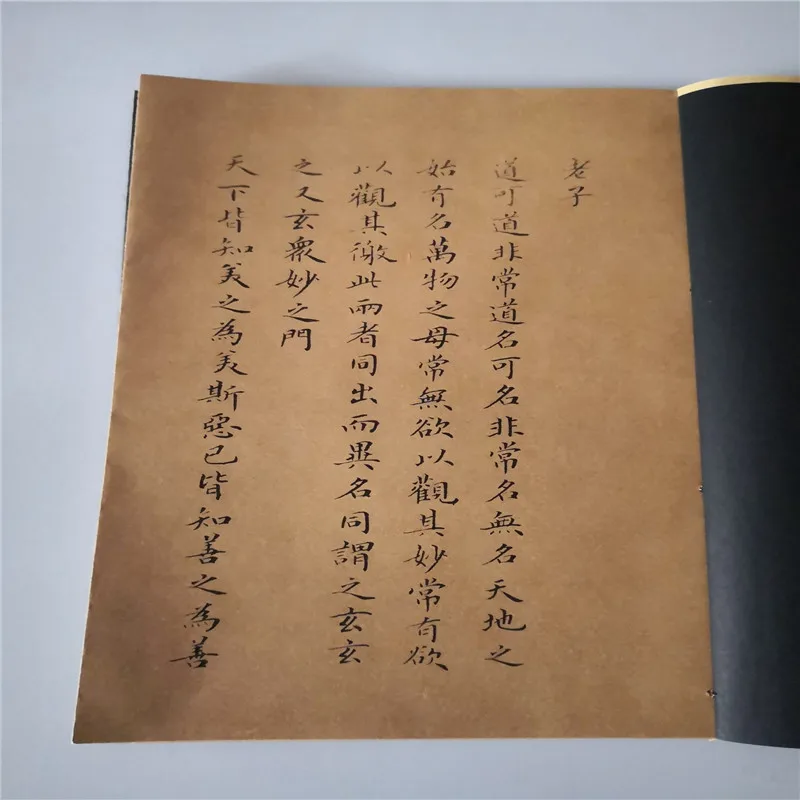 老子
道可道非常道名可名非常名無名天地之
始有名萬物之母常無欲以觀其妙常有欲
以觀其徼此兩者同出而異名同謂之玄玄
之又玄衆妙之門
天下皆知美之為美斯惡已皆知善之為善